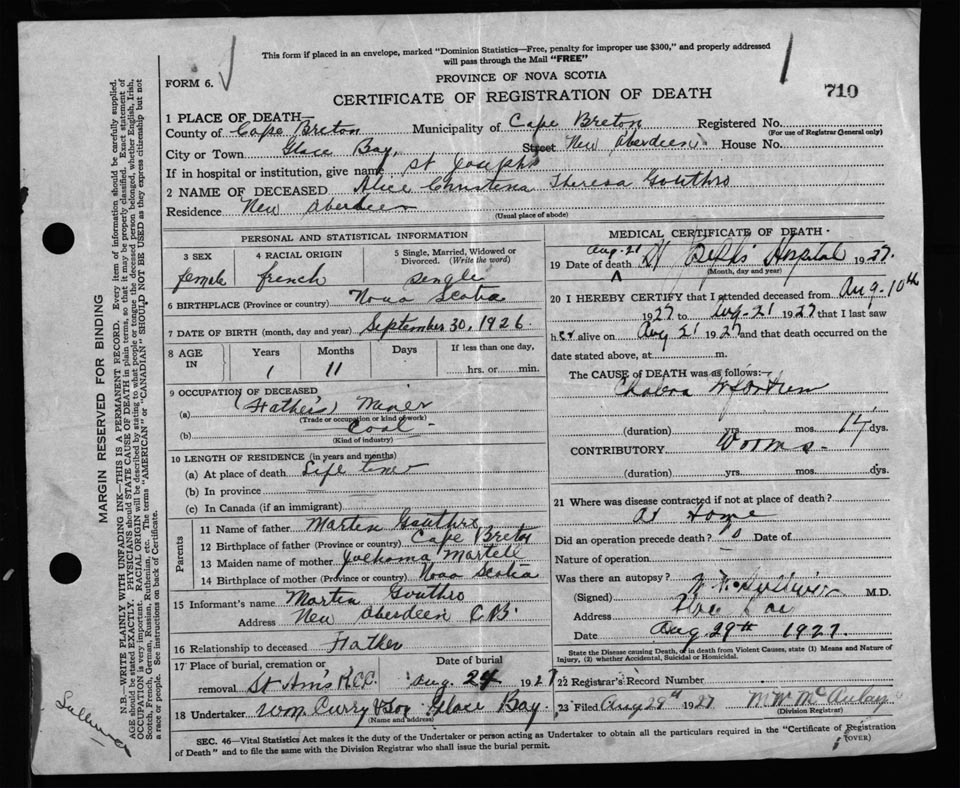 This form if placed in an envelope, marked "Dominion Statistics—Free, penalty for improper use $300," and properly addressed
will pass through the Mail "FREE"
FORM 6.
PROVINCE OF NOVA SCOTIA
CERTIFICATE OF REGISTRATION OF DEATH
710
1 PLACE OF DEATH—
County of Cape Breton Municipality of Cape Breton Registered No.
(For use of Registrar General only)
City or Town Glace Bay, Street New Aberdeen House No.
If in hospital or institution, give name St Josephs
2 NAME OF DECEASED Alice Christena Theresa Gouthro
Residence New Aberdeen
(Usual place of abode)
PERSONAL AND STATISTICAL INFORMATION
3 SEX 4 RACIAL ORIGIN 5 Single, Married, Widowed or
Divorced. (Write the word)
female french single
6 BIRTHPLACE (Province or country) Nova Scotia
7 DATE OF BIRTH (month, day and year) September 30, 1926.
8 AGE IN Years Months Days If less than one day,
1 11 hrs. or min.
9 OCCUPATION OF DECEASED
(a) (Father's) Miner
(Trade or occupation or kind of work)
(b) Coal
(Kind of industry)
10 LENGTH OF RESIDENCE (in years and months)
(a) At place of death Life time
(b) In province
(c) In Canada (if an immigrant)
Parents
11 Name of father Martin Gouthro
12 Birthplace of father (Province or country) Cape Breton
13 Maiden name of mother Martell
14 Birthplace of mother (Province or country) Nova Scotia
15 Informant's name Martin Gouthro
Address New Aberdeen C.B.
16 Relationship to deceased Father
17 Place of burial, cremation or Date of burial
removal St Ann's R.C.C. Aug. 24 1927
18 Undertaker Wm. Curry & Son Glace Bay.
(Name and address)
MEDICAL CERTIFICATE OF DEATH
Aug-21
19 Date of death St Josephs Hospital 1927.
(Month, day and year)
20 I HEREBY CERTIFY that I attended deceased from Aug. 10th
1927 to Aug-21 1927 that I last saw
her alive on Aug 21 1927 and that death occurred on the
date stated above, at m.
The CAUSE of DEATH was as follows:
Cholera Infantum
(duration) yrs. mos. 14 dys.
CONTRIBUTORY Worms.
(duration) yrs. mos. dys.
21 Where was disease contracted if not at place of death?
At Home
Did an operation precede death? No Date of
Nature of operation
Was there an autopsy?
(Signed) M.D.
Address
Date Aug 29th 1927.
State the Disease causing Death, or in death from Violent Causes, state (1) Means and Nature of
Injury, (2) whether Accidental, Suicidal or Homicidal.
22 Registrar's Record Number
23 Filed Aug 29th 1927 M W McAulay
(Division Registrar)
(OVER)
SEC. 46—Vital Statistics Act makes it the duty of the Undertaker or person acting as Undertaker to obtain all the particulars required in the "Certificate of Registration
of Death" and to file the same with the Division Registrar who shall issue the burial permit.
MARGIN RESERVED FOR BINDING
N.B.—WRITE PLAINLY WITH UNFADING INK—THIS IS A PERMANENT RECORD. Every item of information should be carefully supplied.
AGE should be stated EXACTLY. PHYSICIANS should STATE CAUSE OF DEATH in plain terms, so that it may be properly classified. Exact statement of
OCCUPATION is very important. RACIAL ORIGIN will be described by stating to what people or tongue the deceased person belonged, whether English, Irish,
Scotch, French, German, Russian, Ruthenian, etc. The terms "AMERICAN" or "CANADIAN" SHOULD NOT BE USED as they express citizenship but not
a race or people. See instructions on back of Certificate.